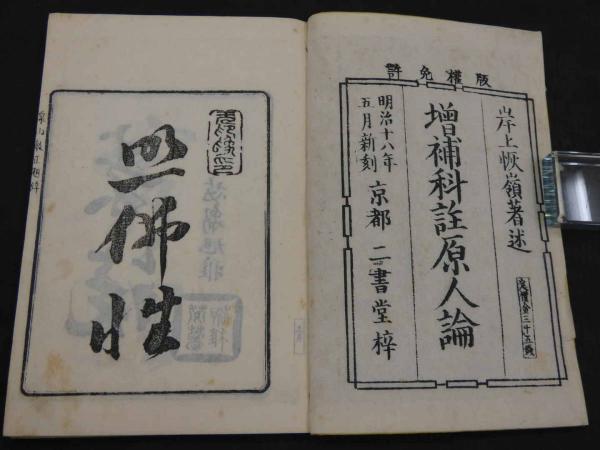 版權免許
岸上恢嶺著述
增補科註原人論
定價金三十五錢
明治十八年
五月新刻
京都 二書堂梓
照佛性